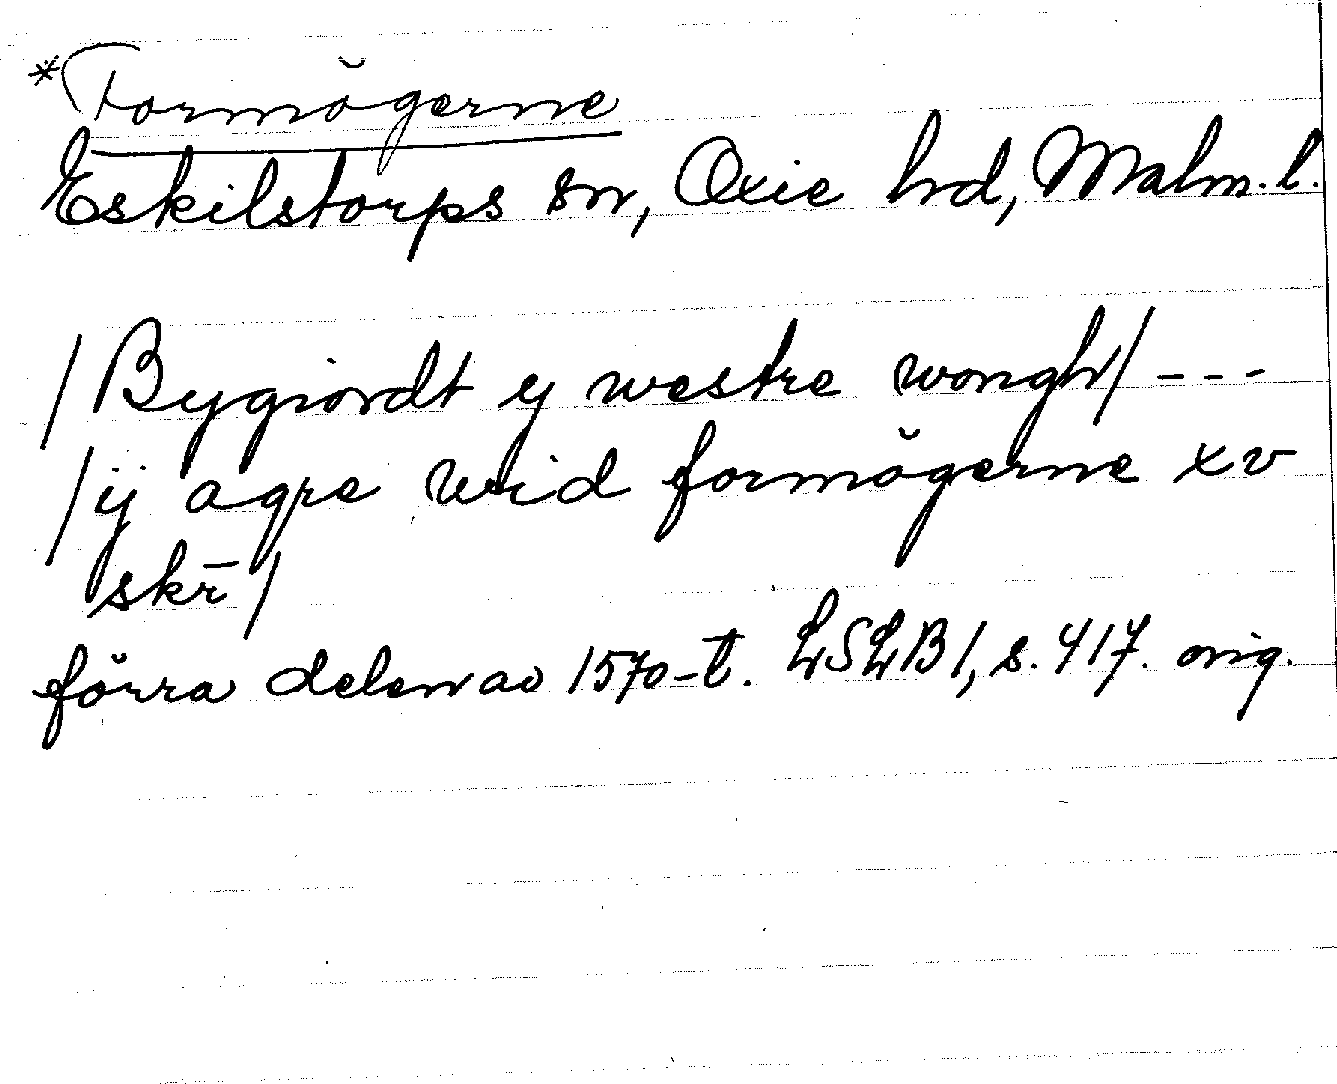 *Formögerne
Eskilstorps sn, Oxie hd, Malm. l.
/Bygiordt y westre wongh/ - - -
/ij agre wid formögerne xv
skr̄/
förra delen av 1570-t. LSLB 1, s. 417. orig.